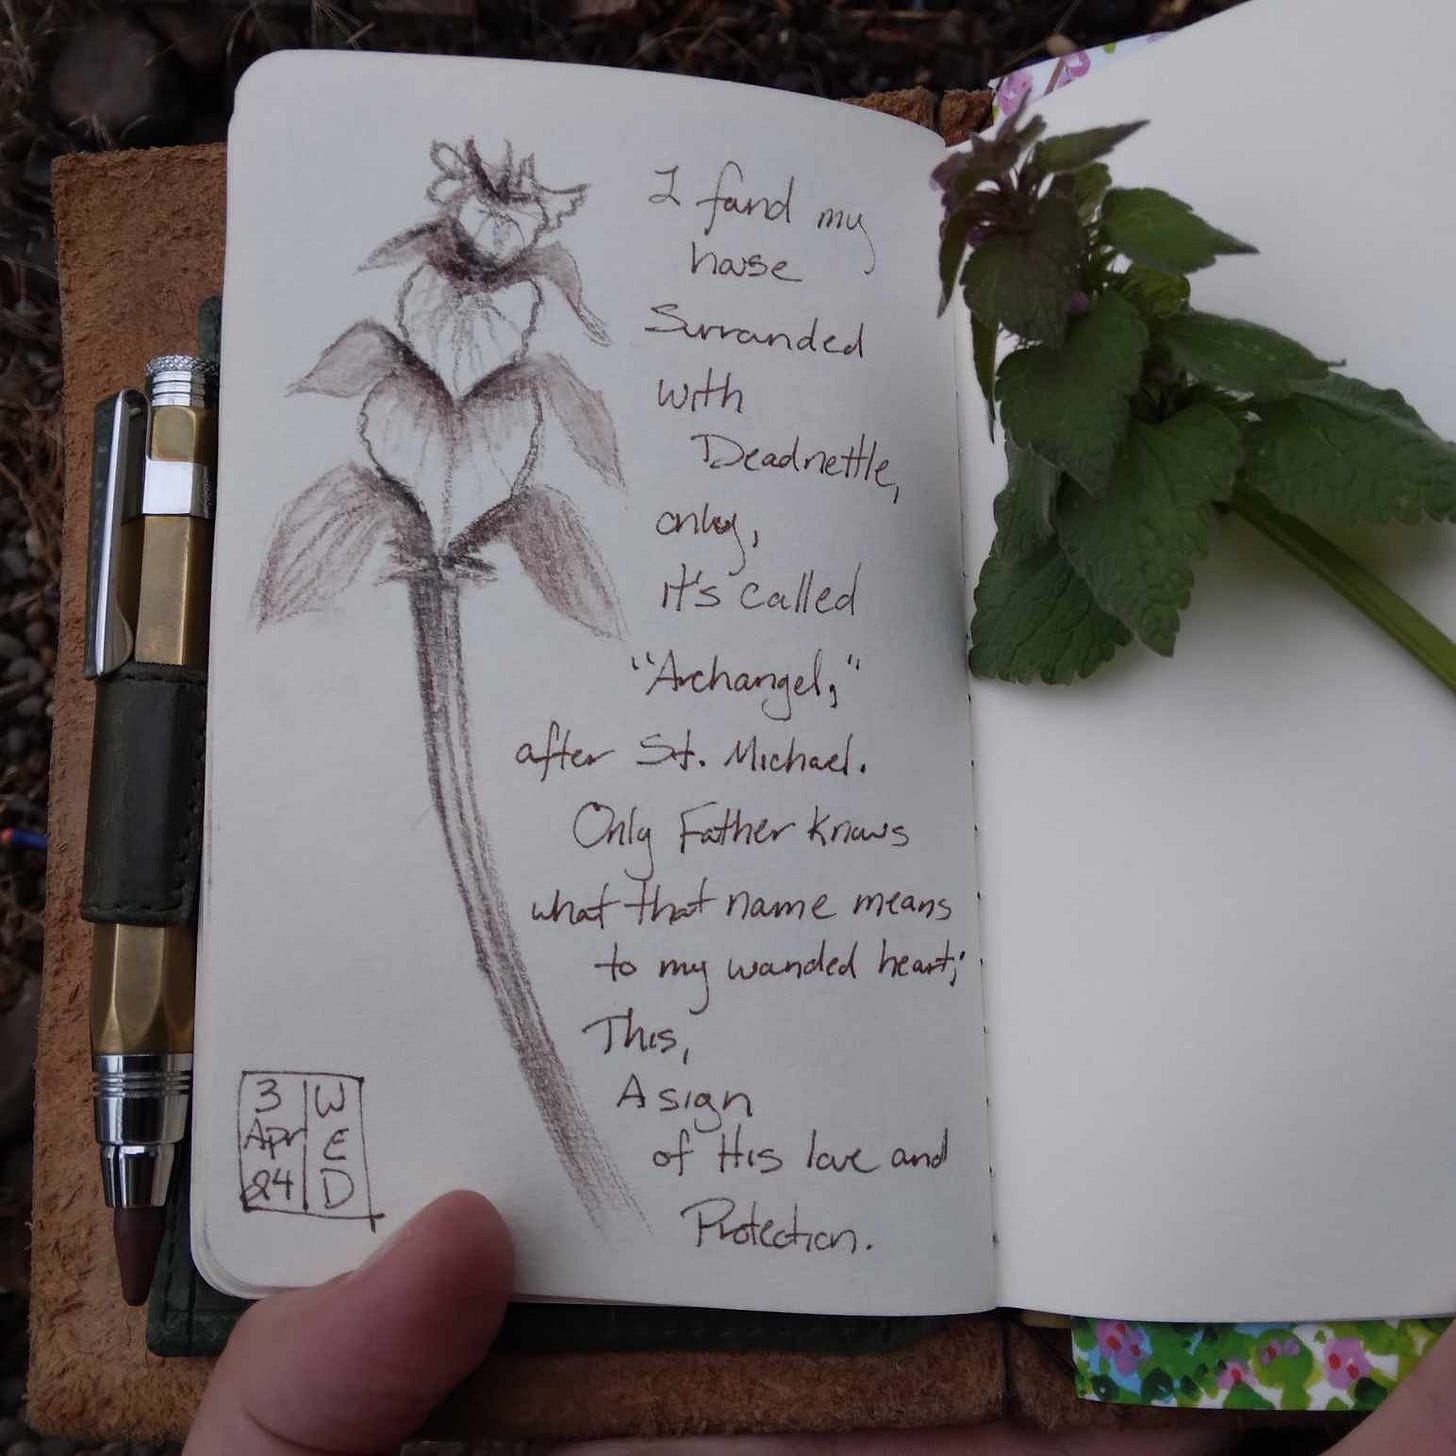 I found my
house
Surrounded
with
Deadnettle,
only,
it's called
"Archangel,"
after St. Michael.
Only Father knows
what that name means
to my wounded heart;
This,
A sign
of His love and
Protection.
3
Apr
24
WED